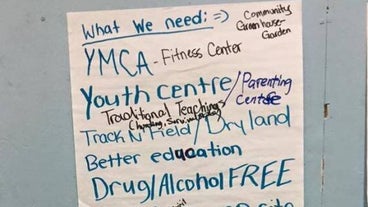 What We need: => Community
Greenhouse-
Garden
YMCA - Fitness Center
Youth centre / Parenting
Centre
Traditional Teachings
Track N' Field / Dry land
Better education
Drug/Alcohol FREE